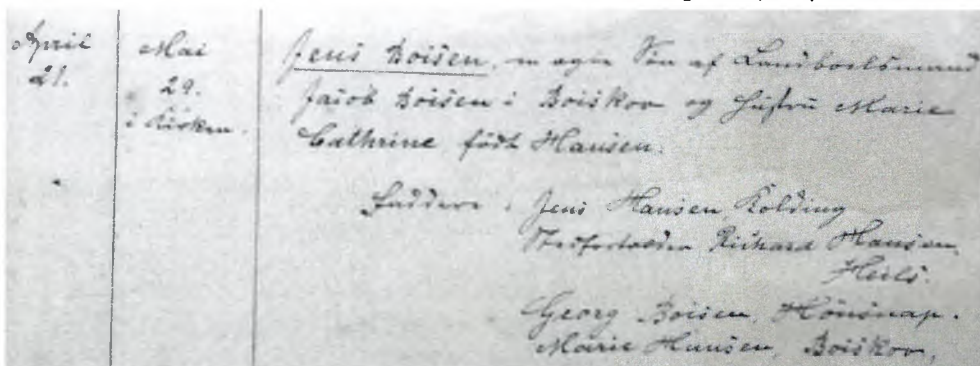 April
21.
Mai
29.
i Kirken.
Jens Boisen, en ægte Søn af Landboelsmand
Jacob Boisen i Boiskov og Hustru Marie
Cathrine født Hansen.
Faddere: Jens Hansen, Kolding
Richard Hansen,
Heils.
Georg Boisen, Hönsnap.
Marie Hansen, Boiskov,